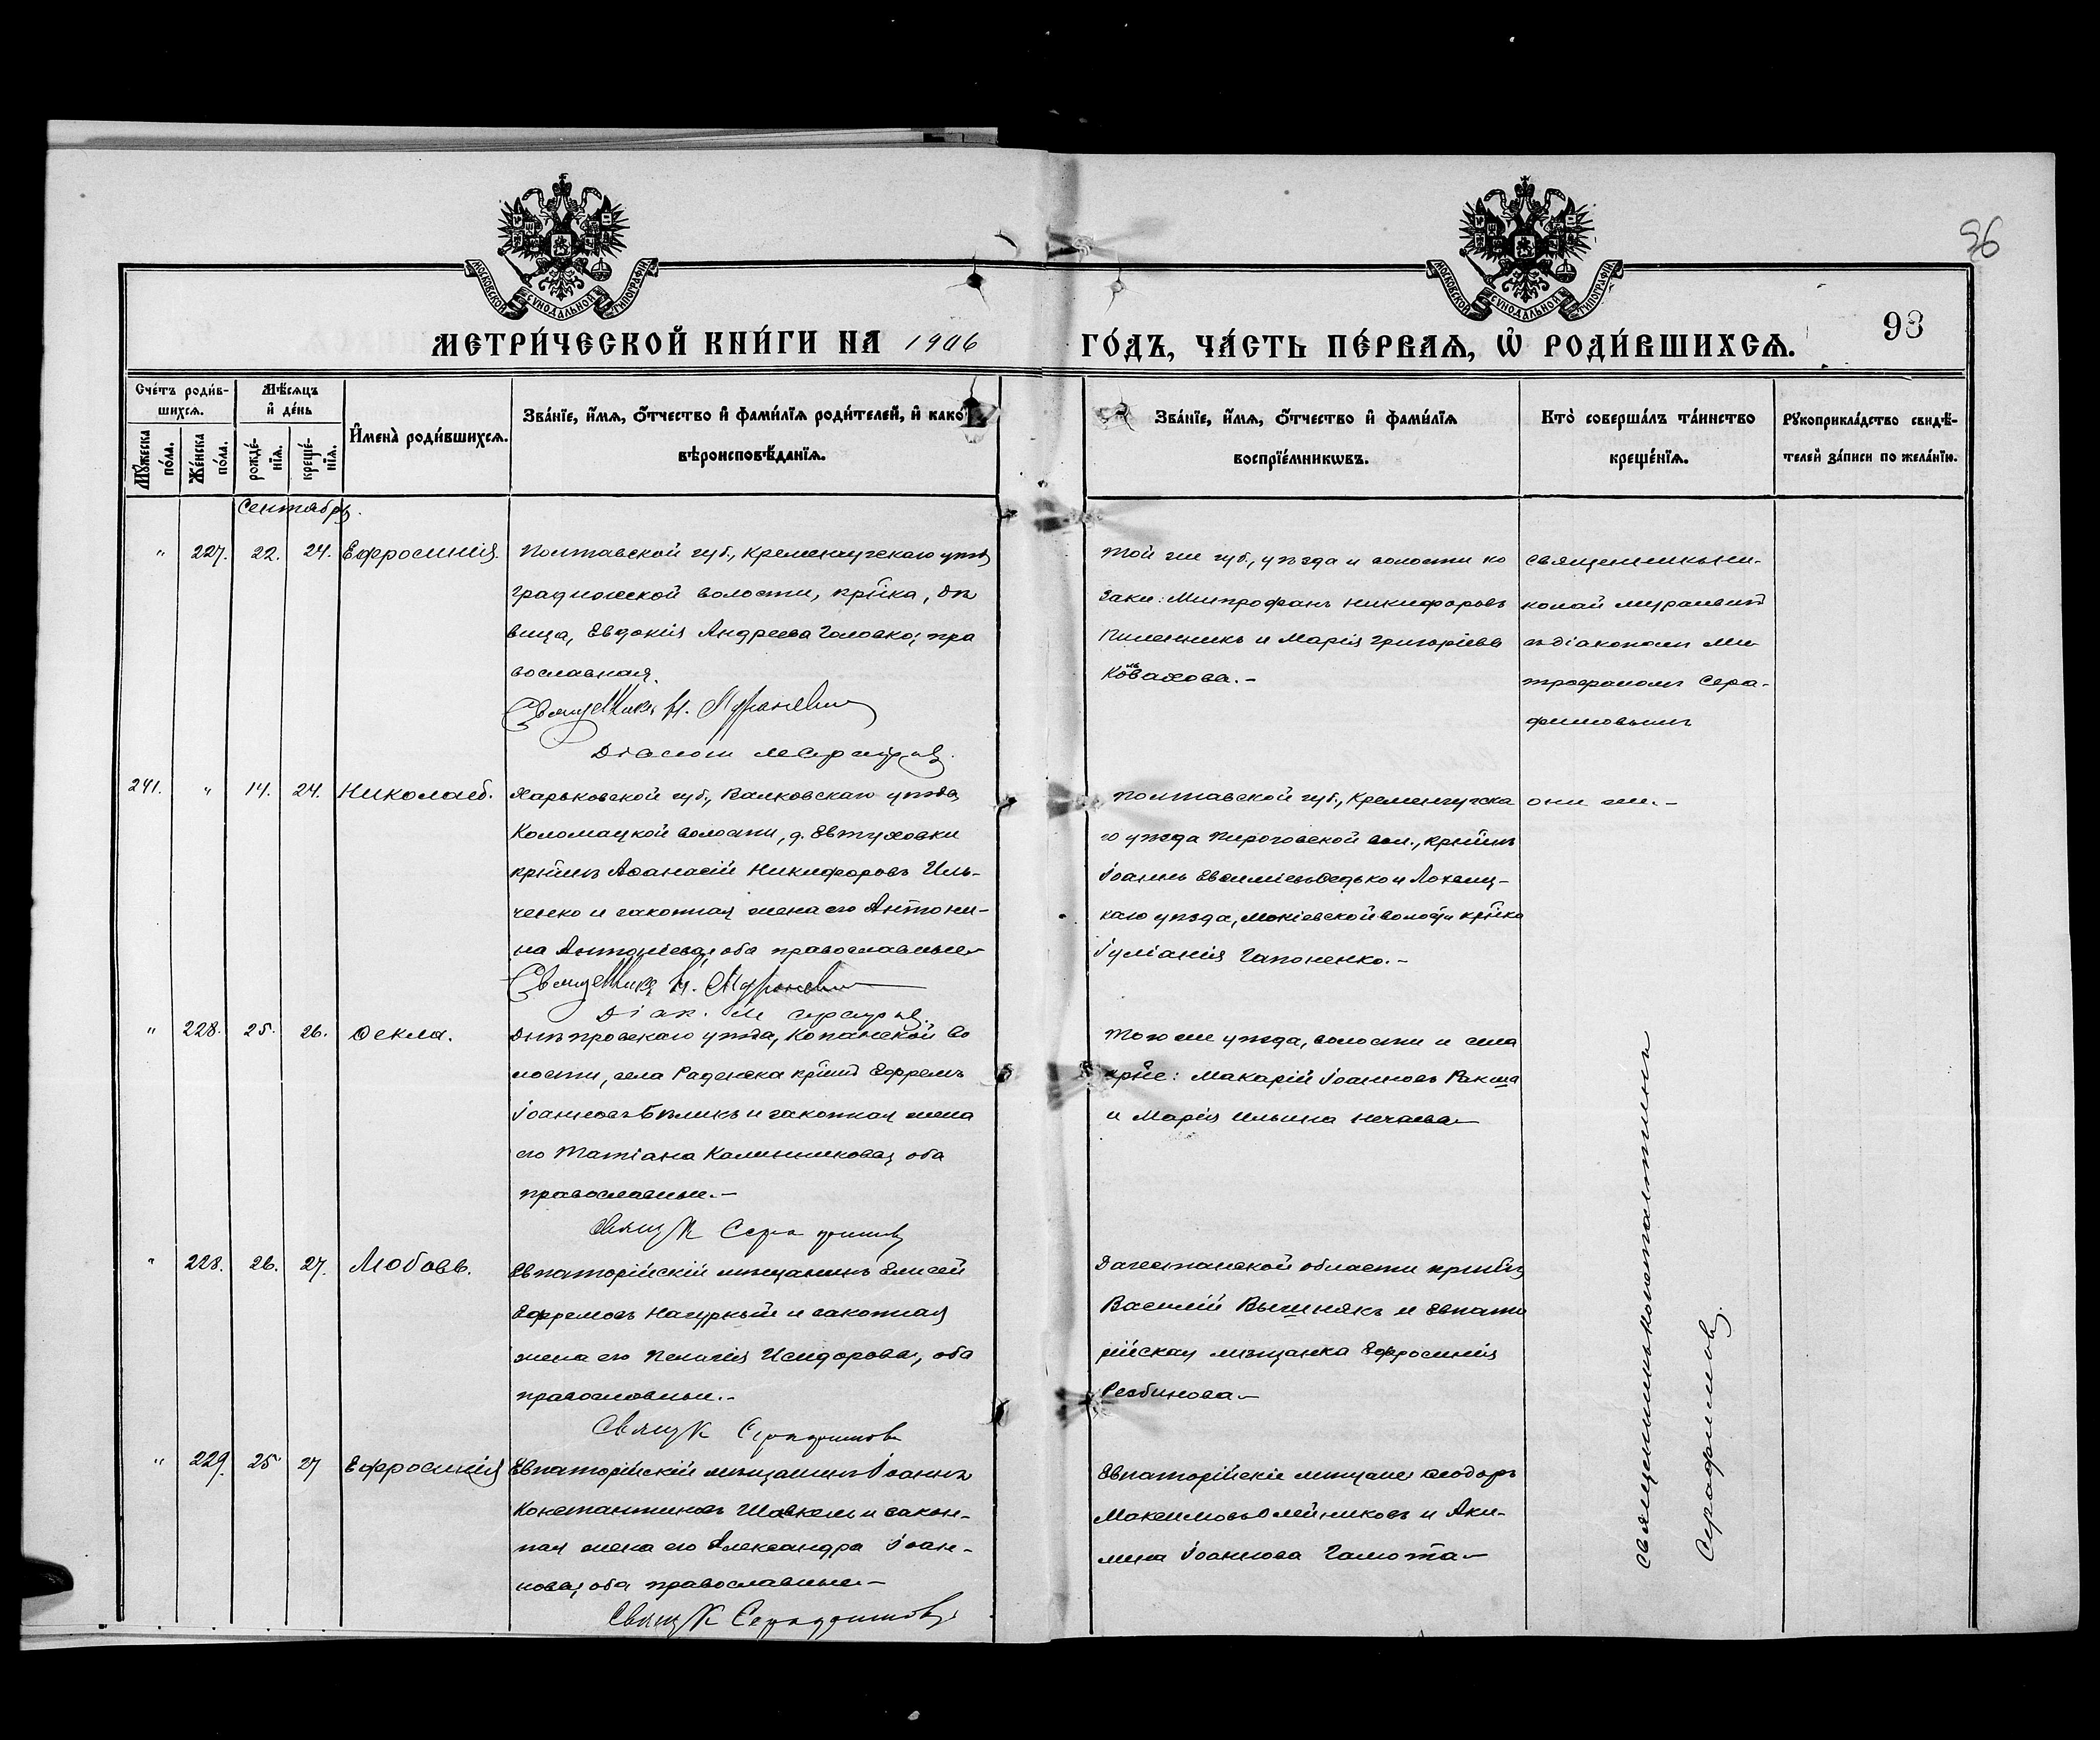 96
МОСКОВСКОЙ СУНОДАЛЬНОЙ ТИПОГРАФІИ
МОСКОВСКОЙ СУНОДАЛЬНОЙ ТИПОГРАФІИ
МЕТРИ́ЧЕСКОЙ КНИ́ГИ НА 1906
ГО́ДЪ, ЧА́СТЬ ПЕ́РВАѦ, Ѡ҆ РОДИ́ВШИХСѦ.
93
Сче́тъ роди́в-
шихсѧ.
Мꙋ́жеска
по́ла.
Же́нска
по́ла.
Мѣ́сѧцъ
и҆ де́нь
рожде́-
нїѧ.
креще́-
нїѧ.
И҆мена̀ роди́вшихсѧ.
Зва́нїе, и҆́мѧ, ѻ҆́тчество и҆ фами́лїѧ роди́телей, и҆ како́
вѣроисповѣ́данїѧ.
Зва́нїе, и҆́мѧ, ѻ҆́тчество и҆ фами́лїѧ
воспрїе́мникѡвъ.
Кто̀ соверша́лъ та́инство
креще́нїѧ.
Рꙋкоприкла́дство свидѣ́-
телей за́писи по жела́нїю.
Сентябрь.
" 227. 22. 24. Ефросинія.
Полтавской губ., Кременчугскаго уѣз
градижской волости, кр̃нка, дѣ
вица, Евдокія Андреева Головко, пра
вославная.
Священникъ Н. Мураневич
Діаконъ М Серафимов.
Той же губ., уѣзда и волости ко
заки: Митрофанъ Никифоровъ
Пилипникъ и Марія Григоріева
Ковалхова. –
Священникъ Ни-
колай Мураневич
съ діакономъ Ми
трофаномъ Сера-
фимовымъ
241. " 14. 24. Николай.
Харьковской губ., Валковскаго уѣзда
Коломацкой волости, д. Евтуховки
кр̃нинъ Аѳанасій Никифоровъ Иль-
ченко и законная жена его Антони-
на Антоніева, оба православные
Священникъ Н. Мураневич
Діак. М Серафимов.
Полтавской губ., Кременчугска
го уѣзда Пироговской вол., кр̃нинъ
Іоаннъ Евѳиміевъ Ѳедько и Лохвиц-
каго уѣзда, Мокіевской волости кр̃нка
Іуліанія Гапоненко. –
они же. –
" 228. 25. 26. Ѳекла.
Днѣпровскаго уѣзда, Копанской во
лости, села Раденска кр̃нинъ Ефремъ
Іоанновъ Бѣликъ и законная жена
его Татіана Калинникова, оба
православные. –
Свящ К Серафимов
Того же уѣзда, волости и села
кр̃не: Макарій Іоанновъ Ракша
и Марія Ильина Нечаева
" 228. 26. 27. Любовь.
Евпаторійскій мѣщанинъ Елисей
Ефремовъ Нагурный и законная
жена его Пелагія Исидорова, оба
православные. –
Свящ К Серафимовъ
Дагестанской области кр̃нинъ
Василій Вышнякъ и Евпато
рійская мѣщанка Ефросинія
Резбинова –
" 229. 25 27 Ефросинія
Евпаторійскій мѣщанинъ Іоаннъ
Константиновъ Шавкень и закон-
ная жена его Александра Іоан-
нова, оба православные –
Свящ К Серафимовъ
Евпаторійскіе мѣщане Ѳеодоръ
Максимовъ Олейниковъ и Аки-
лина Іоаннова Гамота –
Священникъ Константинъ
Серафимовъ.